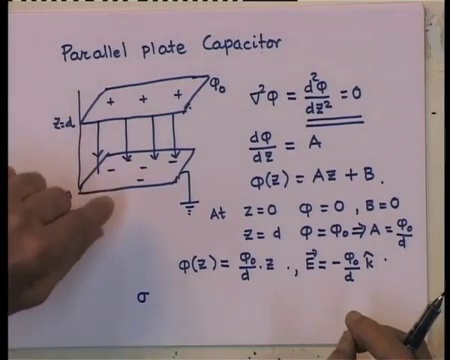 Parallel plate Capacitor
φ₀
+ + +
z=d
- - - - -
∇²φ = d²φ/dz² = 0
dφ/dz = A
φ(z) = Az + B.
At z=0 φ=0, B=0
z=d φ=φ₀ ⇒ A = φ₀/d
φ(z) = φ₀/d · z ., E⃗ = -φ₀/d k̂ .
σ